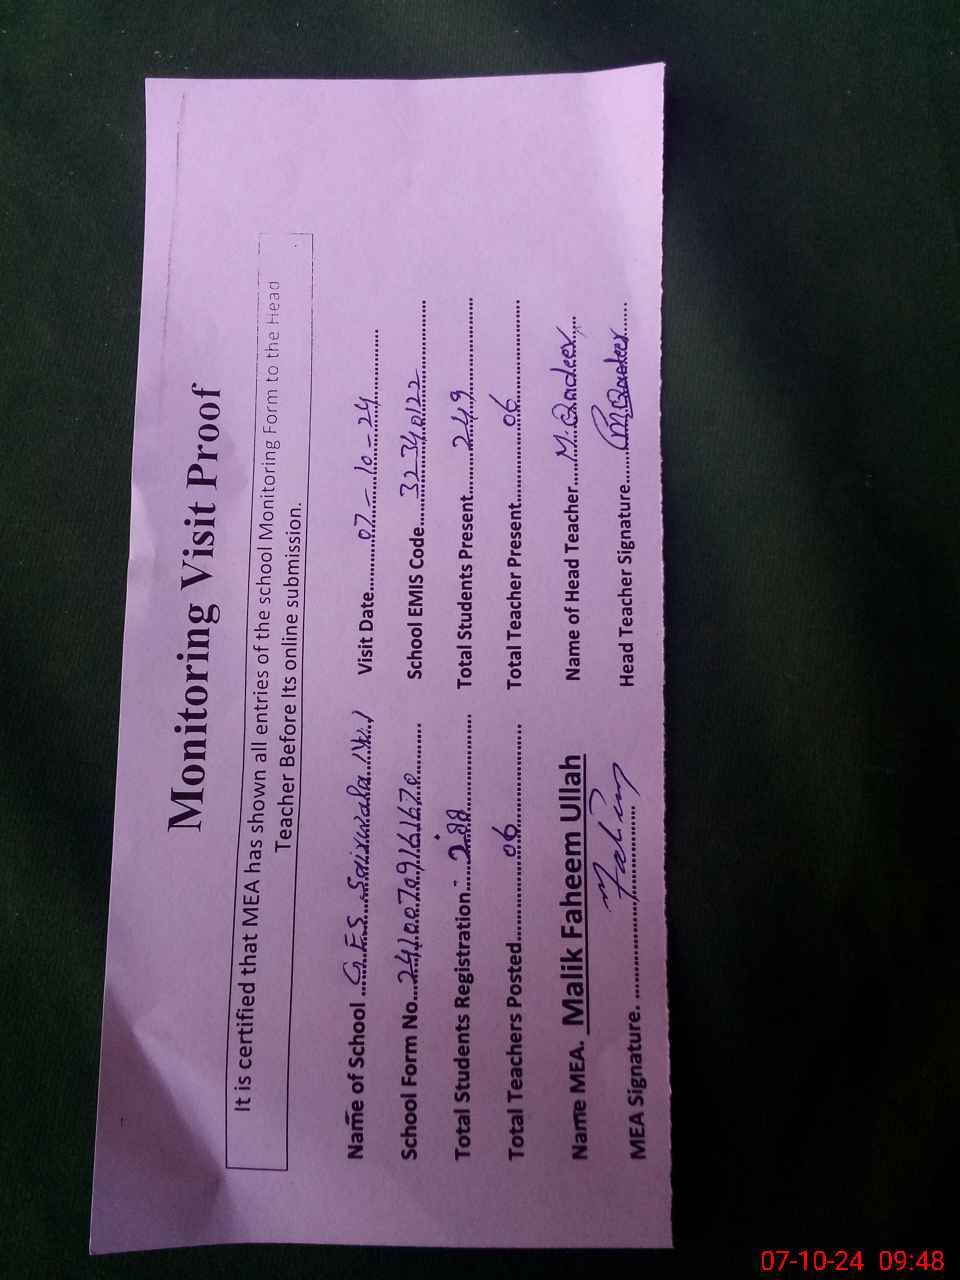 Monitoring Visit Proof
It is certified that MEA has shown all entries of the school Monitoring Form to the Head
Teacher Before Its online submission.
Name of School ...G.E.S
Visit Date...07-10-24
School Form No...24100709161670
School EMIS Code...32340122
Total Students Registration...288
Total Students Present...249
Total Teachers Posted...06
Total Teacher Present...06
Name MEA. Malik Faheem Ullah
Name of Head Teacher...M. Qadeer
MEA Signature. ...Fahim
Head Teacher Signature...M Qadeer
07-10-24 09:48